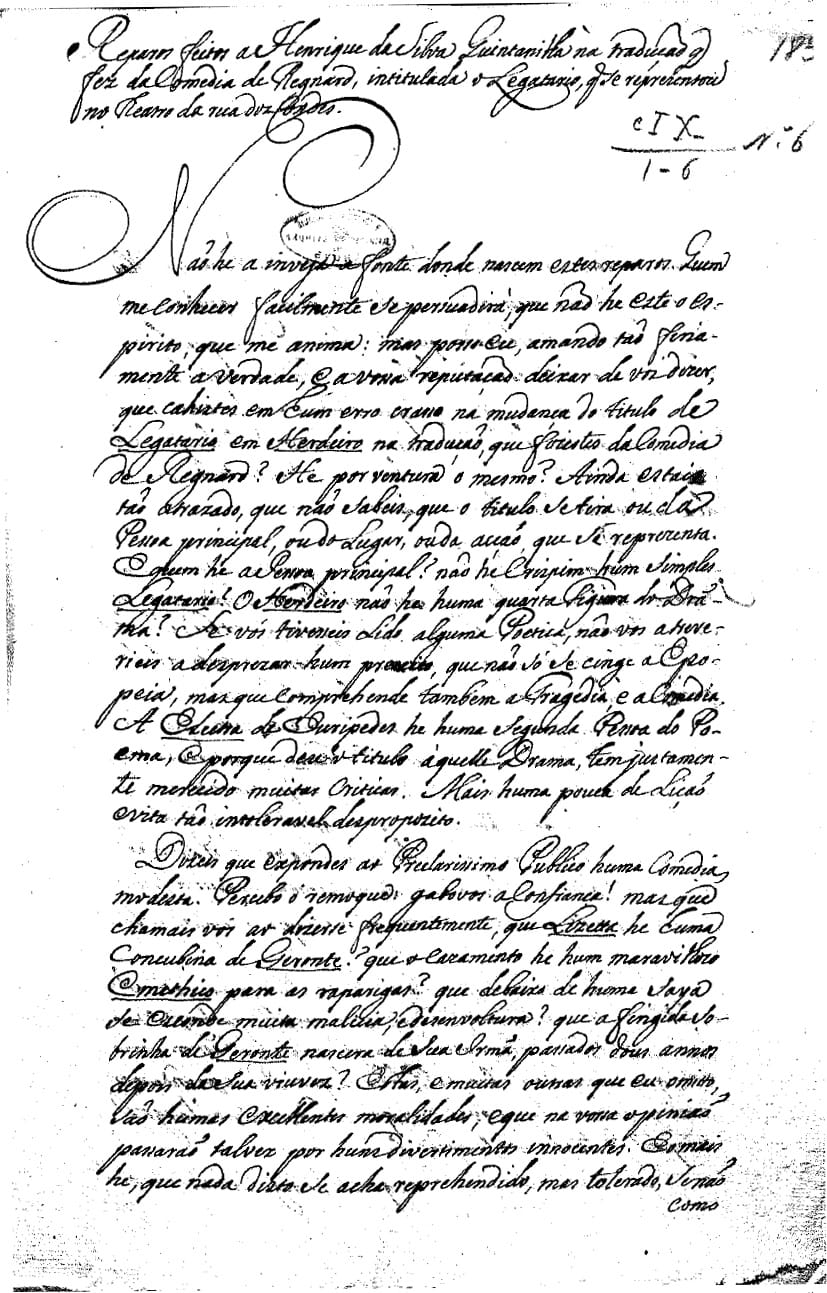 Reparos feitos a Henrique da Silva Quintanilha na traducaõ q̃
fez da Comedia de Regnard, intitulada o Legatario, q̃ se reprezentou
no Teatro da rua dos Condes.
CIX
1-6
N.º 6
Naõ he a inveja a fonte donde nascem estes reparos. Quem
me conhecer facilmente se persuadirá, que naõ he este o es-
pirito, que me anima: mas posso eu, amando taõ seria-
mente a verdade, e a vossa reputaçaõ deixar de vos dizer,
que cahistes em hum erro crasso na mudança do titulo de
Legatario em Herdeiro na traducaõ, que fizestes da Comedia
de Regnard? He por ventura o mesmo? Ainda estais
taõ atrazado, que naõ sabeis, que o titulo se tira ou da
Pessoa principal, ou do Lugar, ou da acçaõ, que se reprezenta.
E quem he a Pessoa principal? naõ he Crispim hum simples
Legatario? O Herdeiro naõ he huma quarta Figura do Dra-
ma? Se vós tivesseis Lido alguma Poetica, naõ vos atreve-
rieis a desprezar hum preceito, que naõ só se cinge a Epo-
peia, mas que comprehende tambem a Tragedia, e a Comedia.
A Electra de Euripedes he huma segunda Pessoa do Po-
ema, e porque deu o titulo áquelle Drama, tem justamen-
te merecido muitas Criticas. Mais huma pouca de Liçaõ
evita taõ intoleravel desproposito.
Dizeis que expondes ao Preclarissimo Publico huma Comedia
modesta. Percebo o remoque: gabovos a Confiança! mas que
chamais vós ao dizerse frequentemente, que Lizetta he huma
Concubina de Geronte? que o cazamento he hum maravilhozo
Emethico para as raparigas? que debaixo de huma saya
se esconde muita malicia, e desenvoltura? que a fingida so-
brinha de Geronte nascera de sua Irmã, passados dous annos
depois da sua viuvez? Estas, e muitas outras que eu omito,
saõ humas excellentes moralidades, e que na vossa opiniaõ
passaraõ talvez por huns divertimentos innocentes. E o mais
he, que nada disto se acha reprehendido, mas tolerado, senaõ
como